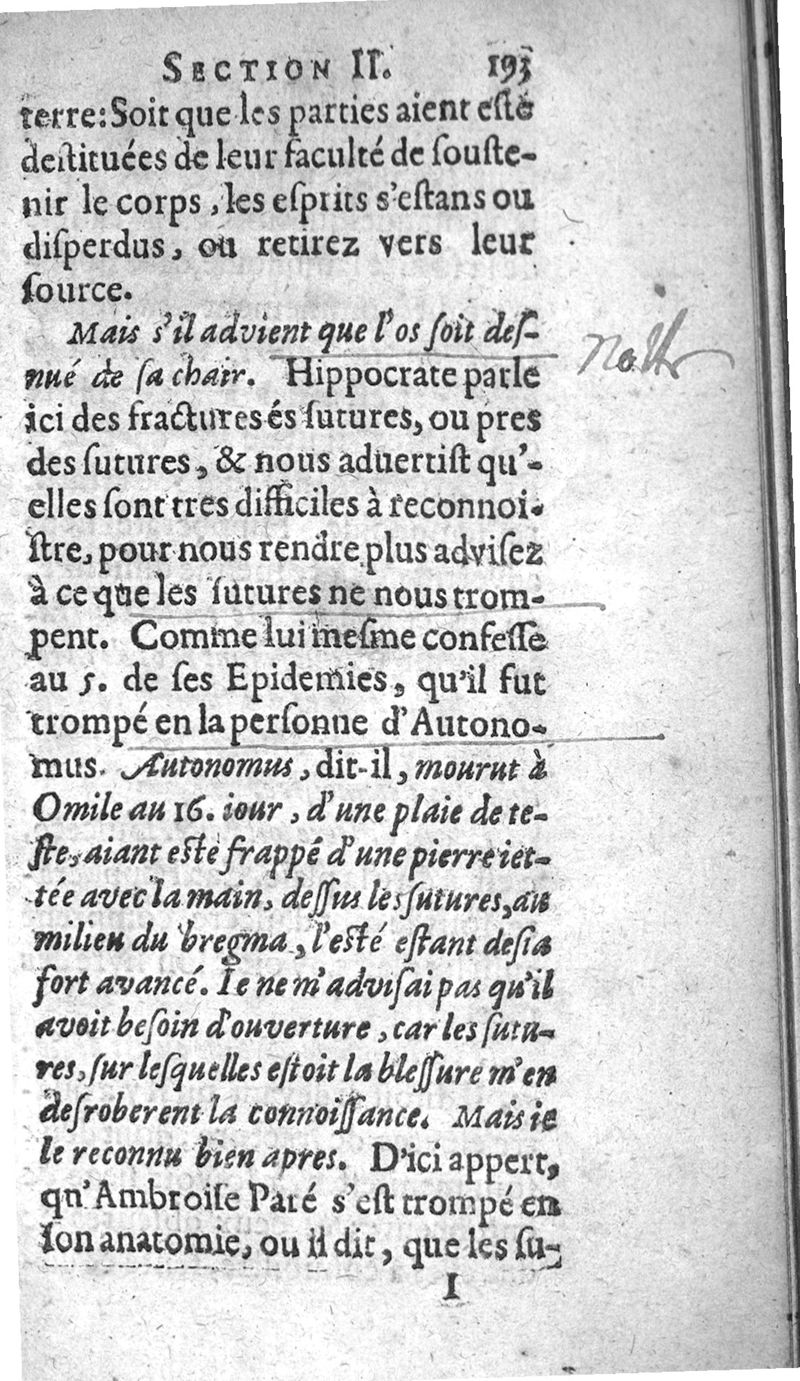 SECTION II. 193
terre: Soit que les parties aient esté
destituées de leur faculté de souste-
nir le corps, les esprits s'estans ou
disperdus, ou retirez vers leur
source.
Mais s'il advient que l'os soit des-
nué de sa chair. Hippocrate parle
ici des fractures és sutures, ou pres
des sutures, & nous aduertist qu'-
elles sont tres difficiles à reconnoi-
stre, pour nous rendre plus advisez
à ce que les sutures ne nous trom-
pent. Comme lui mesme confesse
au 5. de ses Epidemies, qu'il fut
trompé en la personne d'Autono-
mus. Autonomus, dit-il, mourut à
Omile au 16. iour, d'une plaie de te-
ste, aiant esté frappé d'une pierre iet-
tée avec la main, dessus les sutures, au
milieu du bregma, l'esté estant desia
fort avancé. Ie ne m'advisai pas qu'il
avoit besoin d'ouverture, car les sutu-
res, sur lesquelles estoit la blessure m'en
desroberent la connoissance. Mais ie
le reconnu bien apres. D'ici appert,
qu'Ambroise Paré s'est trompé en
son anatomie, ou il dit, que les su-
I